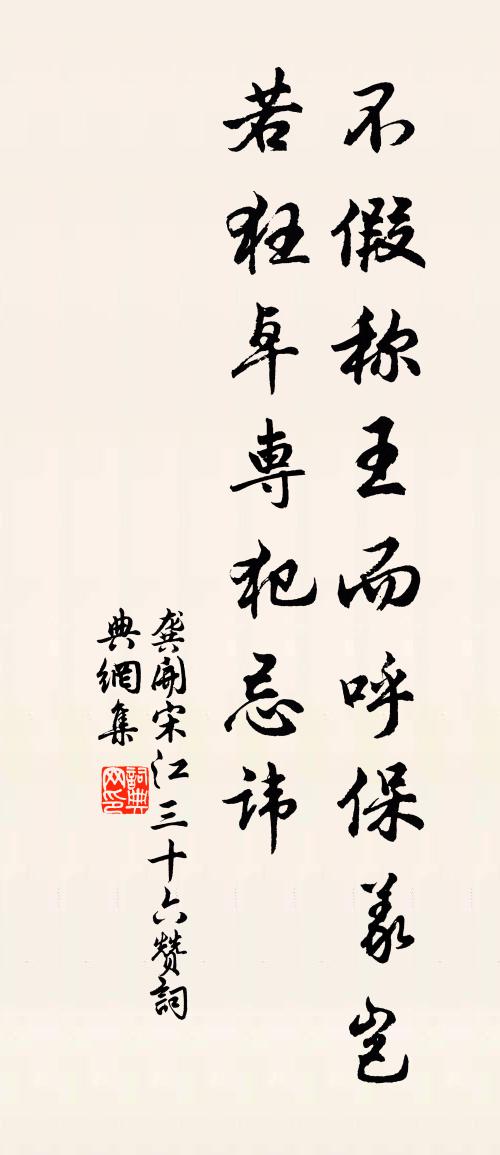 不假称王而呼保义岂
若狂卓専犯忌讳
龚開宋江三十六赞詞
典網集
詞典网印